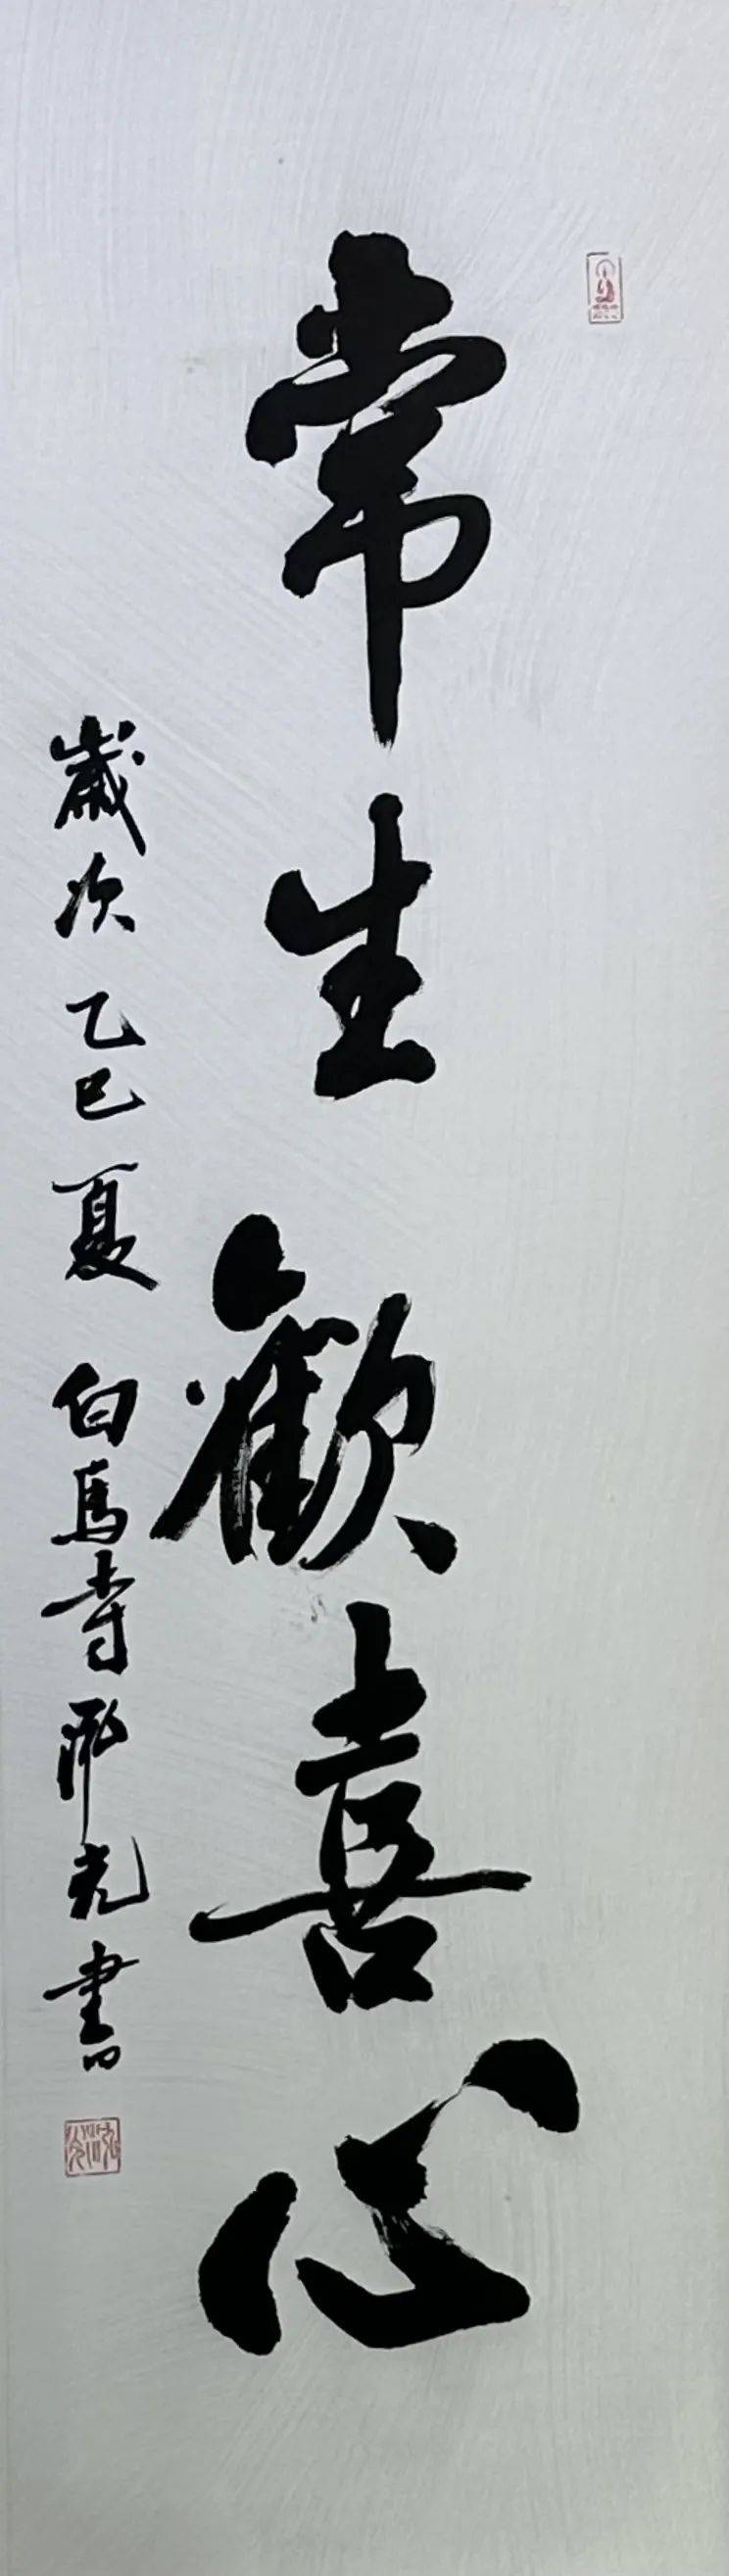 常生歡喜心
歲次乙巳夏 白馬寺 光書